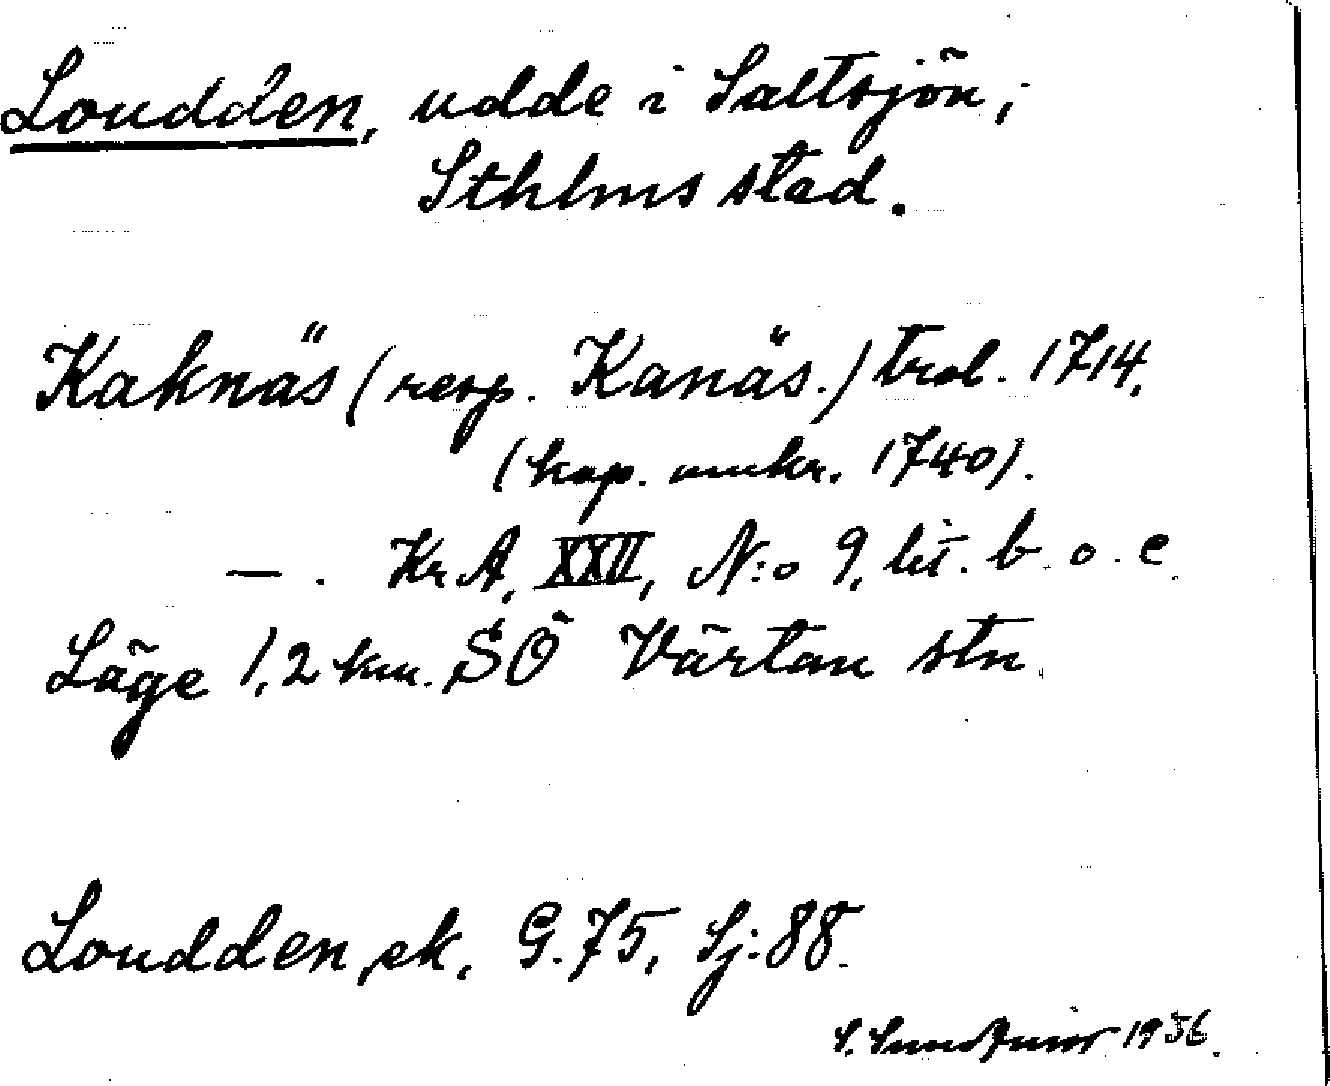 Loudden, udde i Saltsjön,
Sthlms stad.
Kaknäs (resp. Kanäs.) trol. 1714.
(kop. omkr. 1740).
—. Kr A, XXII, N:o 9, lit. b. o. c.
Läge 1,2 km. SÖ Värtan stn.
Loudden, ek. G. 75, Sj: 88.
S. 1936.